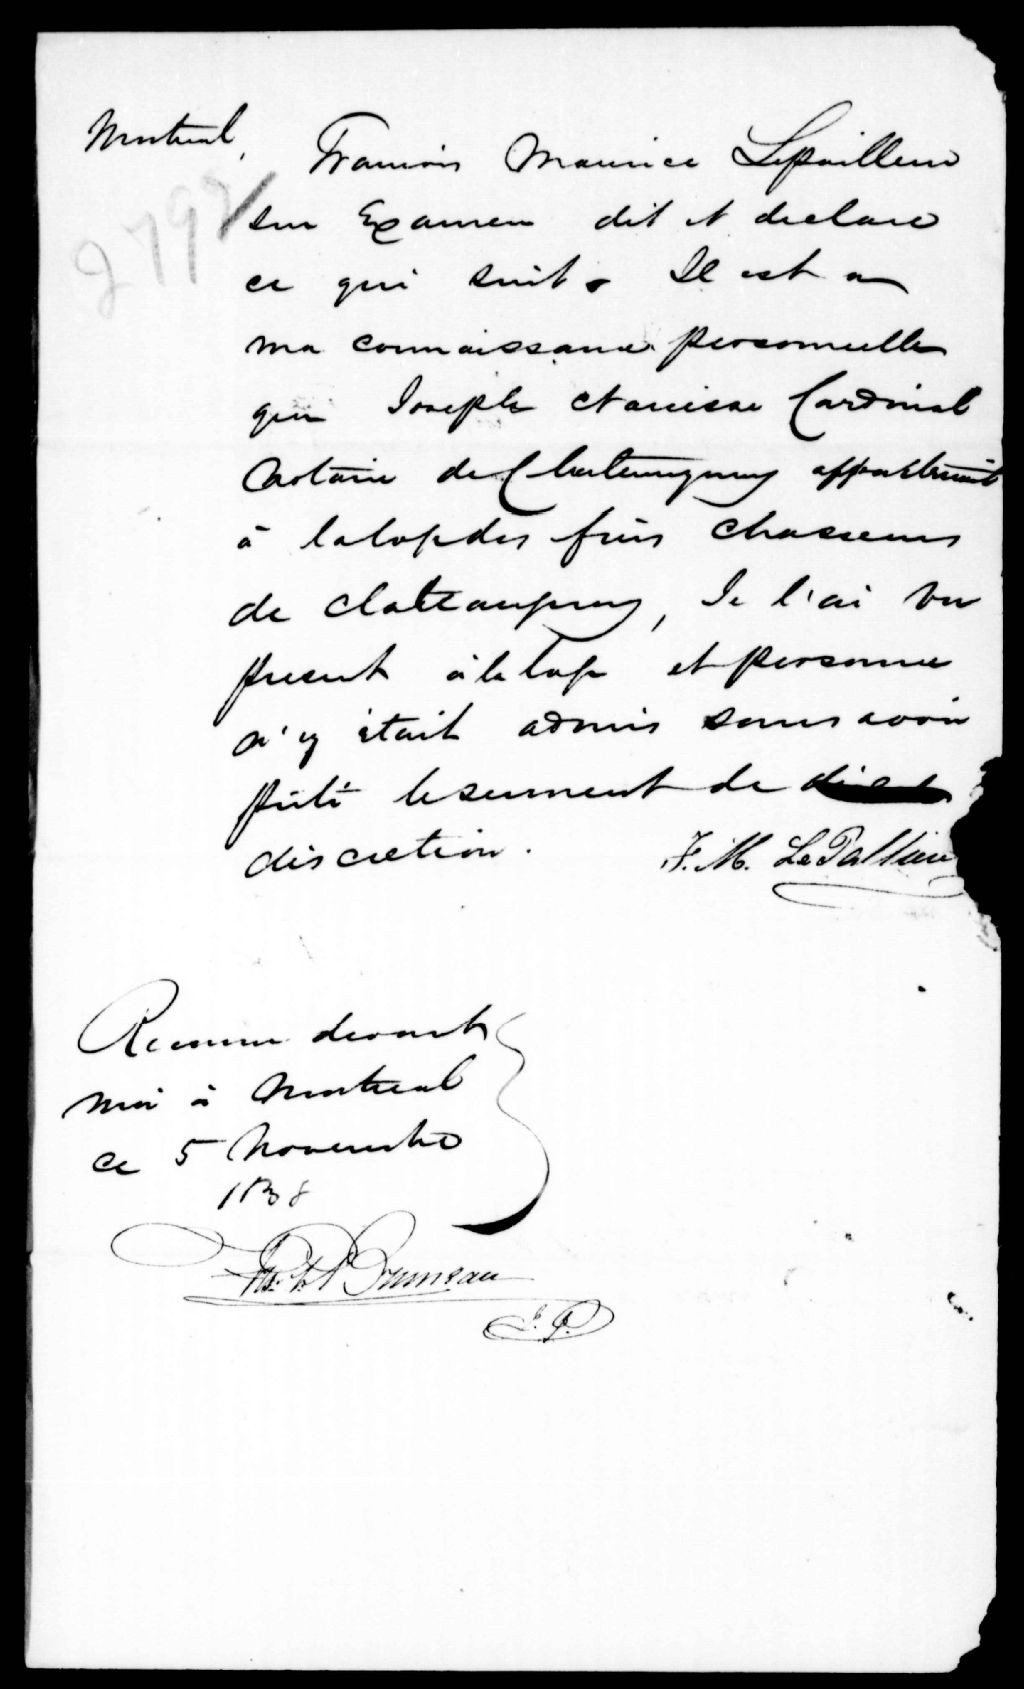 Montreal,
François Maurice Lepailleur
sur Examen dit et declare
ce qui suit. Il est a
ma connaissance personnelle
que Joseph Narcisse Cardinal
Notaire de Chateauguay appartenait
à la loge des frères chasseurs
de Chateauguay, Je l'ai vu
present à la loge et personne
n'y était admis sans avoir
prêté le serment de
discretion.
F. M. LePallieu
2798
Reconnu devant
moi à Montreal
ce 5 Novembre
1838
P. Bruneau
J. P.